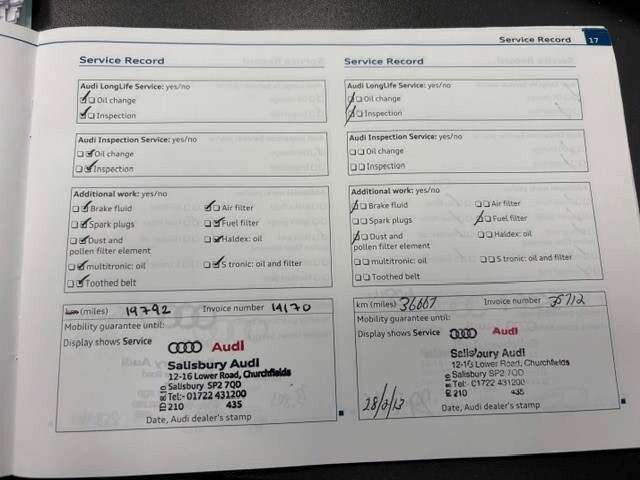 Service Record 17
Service Record
Audi LongLife Service: yes/no
Oil change
Inspection
Audi Inspection Service: yes/no
Oil change
Inspection
Additional work: yes/no
Brake fluid Air filter
Spark plugs Fuel filter
Dust and Haldex: oil
pollen filter element
multitronic: oil S tronic: oil and filter
Toothed belt
km (miles) 19792 Invoice number 14170
Mobility guarantee until:
Display shows Service
Audi
Salisbury Audi
12-16 Lower Road, Churchfields
Salisbury SP2 7QD
Tel:- 01722 431200
210 435
Date, Audi dealer's stamp
Service Record
Audi LongLife Service: yes/no
Oil change
Inspection
Audi Inspection Service: yes/no
Oil change
Inspection
Additional work: yes/no
Brake fluid Air filter
Spark plugs Fuel filter
Dust and Haldex: oil
pollen filter element
multitronic: oil S tronic: oil and filter
Toothed belt
km (miles) 36667 Invoice number
Mobility guarantee until:
Display shows Service
Audi
Salisbury Audi
12-16 Lower Road, Churchfields
Salisbury SP2 7QD
Tel:- 01722 431200
210 435
28/2/13
Date, Audi dealer's stamp